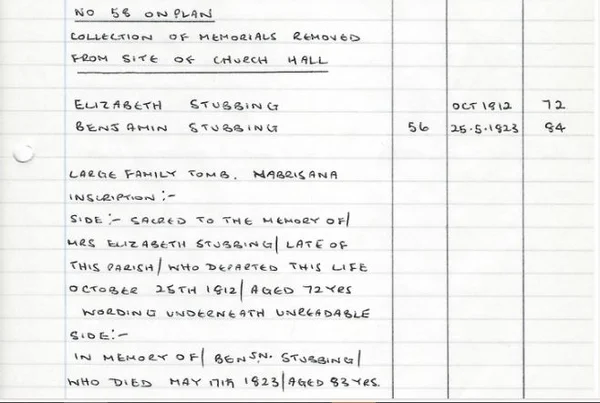 NO 58 ON PLAN
COLLECTION OF MEMORIALS REMOVED
FROM SITE OF CHURCH HALL
ELIZABETH STUBBING OCT 1812 72
BENJAMIN STUBBING 56 25.5.1823 84
LARGE FAMILY TOMB. NABRISANA
INSCRIPTION :-
SIDE :- SACRED TO THE MEMORY OF/
MRS ELIZABETH STUBBING/ LATE OF
THIS PARISH/ WHO DEPARTED THIS LIFE
OCTOBER 25TH 1812/ AGED 72 YRS
WORDING UNDERNEATH UNREADABLE
SIDE:-
IN MEMORY OF/ BENJN. STUBBING/
WHO DIED MAY 17TH 1823/ AGED 83 YRS.